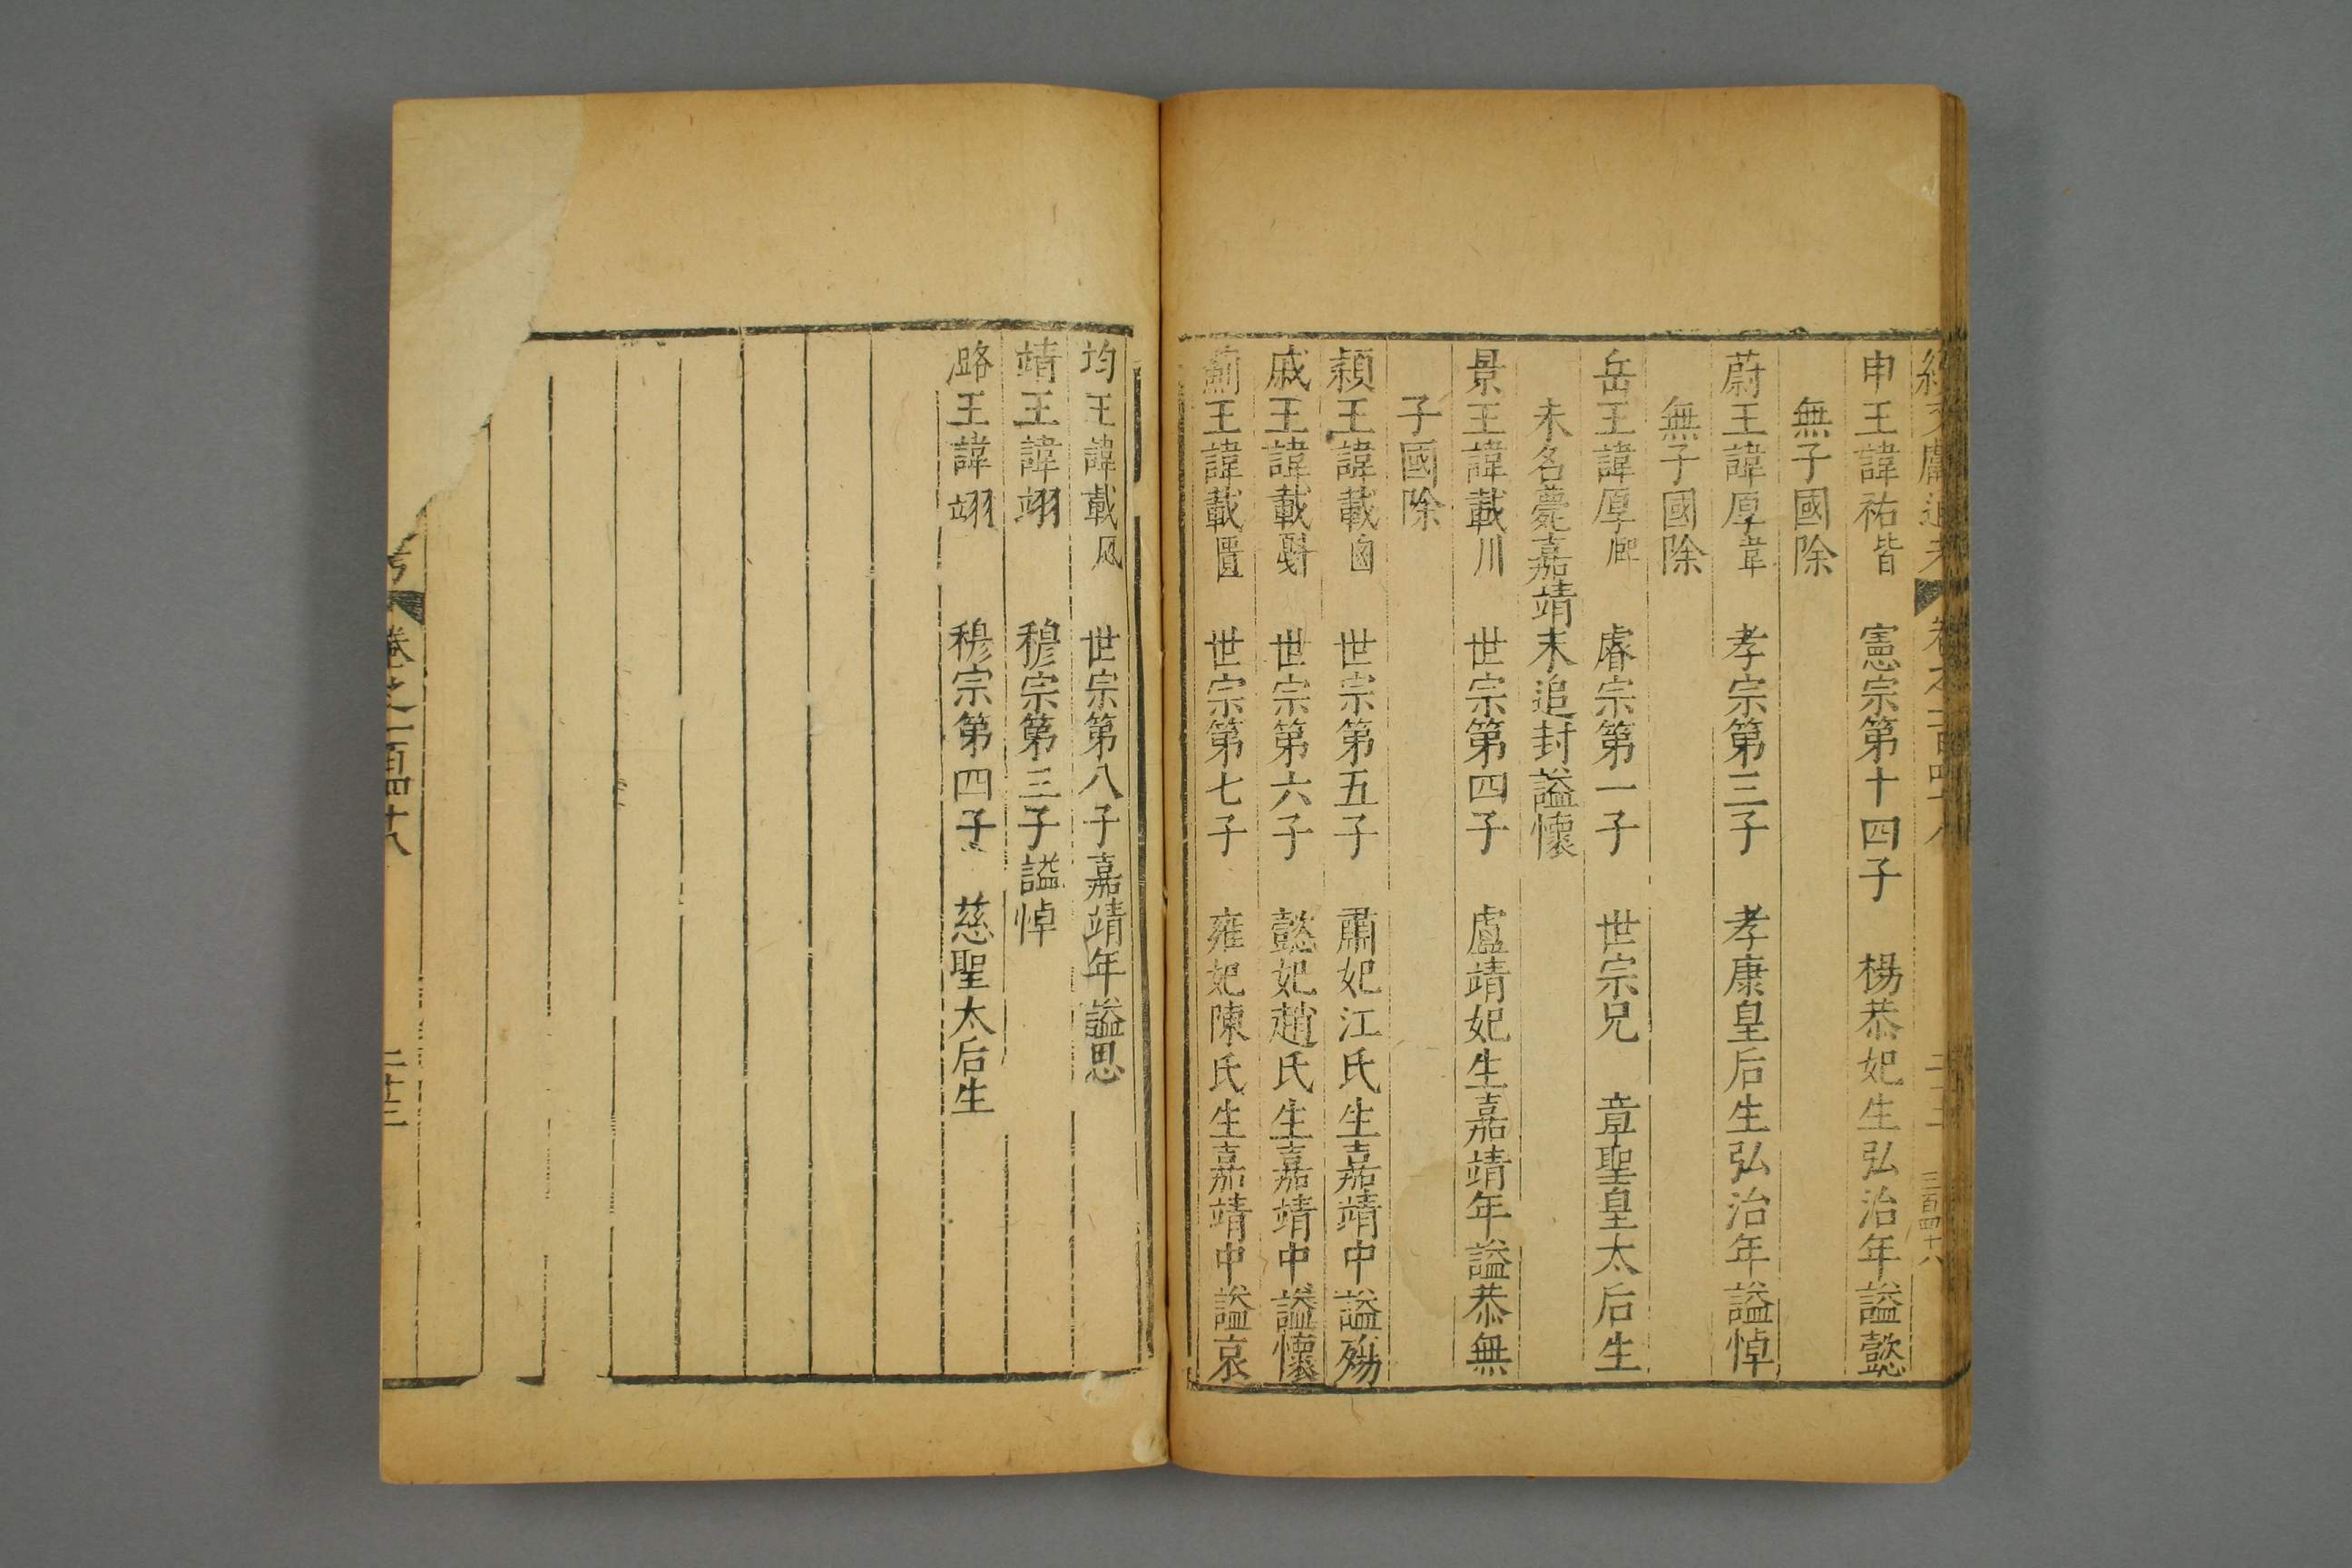 續文獻通考 卷之二百四十八 三百四十八
申王諱祐 憲宗第十四子 楊恭妃生弘治年謚懿
無子國除
蔚王諱厚 孝宗第三子 孝康皇后生弘治年謚悼
無子國除
岳王諱厚 睿宗第一子 世宗兄 章聖皇太后生
未名薨嘉靖末追封謚懷
景王諱載圳 世宗第四子 盧靖妃生嘉靖年謚恭無
子國除
潁王諱載 世宗第五子 肅妃江氏生嘉靖中謚殤
戚王諱載 世宗第六子 懿妃趙氏生嘉靖中謚懷
薊王諱載㙺 世宗第七子 雍妃陳氏生嘉靖中謚哀
均王諱載 世宗第八子嘉靖年謚思
靖王諱翊 穆宗第三子謚悼
潞王諱翊 穆宗第四子 慈聖太后生
考 卷之二百四十八